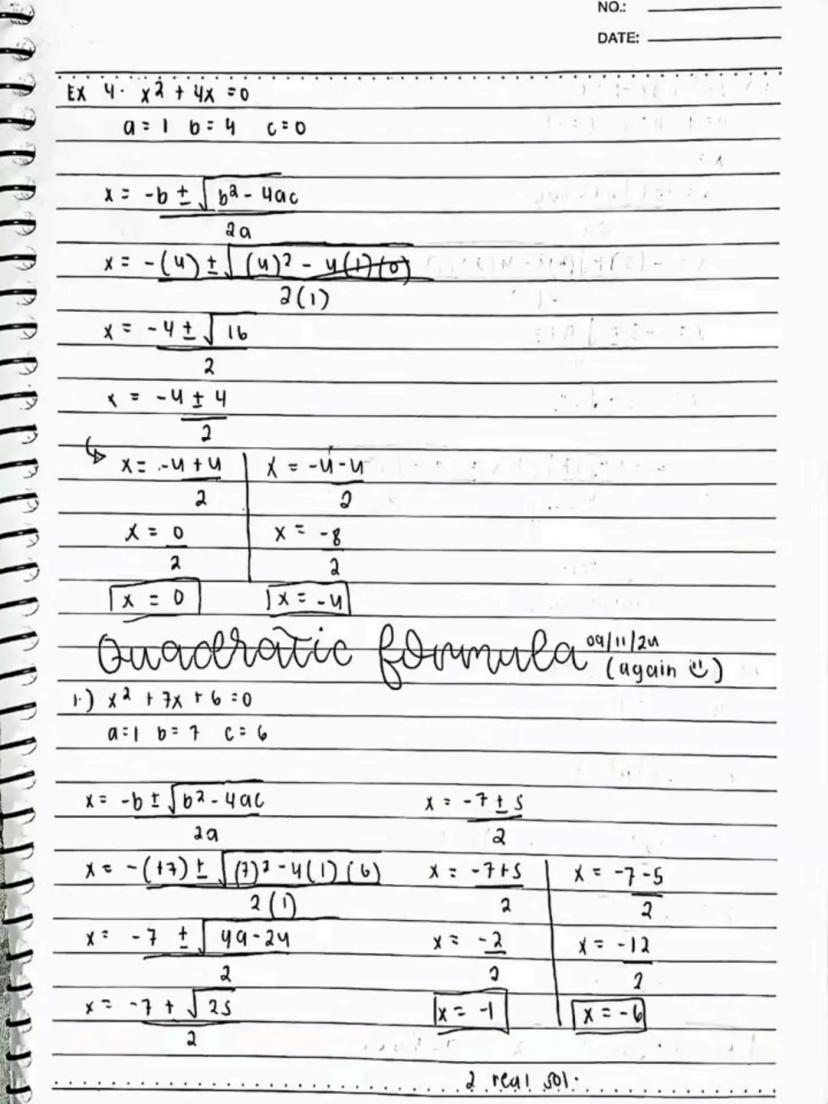 NO.:
DATE:
EX 4. x² + 4x = 0
a = 1 b = 4 c = 0
x = -b ± √b² - 4ac
2a
x = -(4) ± √(4)² - 4(1)(0)
2(1)
x = -4 ± √16
2
x = -4 ± 4
2
x = -4 + 4 x = -4 - 4
2 2
x = 0 x = -8
2 2
x = 0 x = -4
Quadratic formula 09/11/24
(again ü)
1.) x² + 7x + 6 = 0
a = 1 b = 7 c = 6
x = -b ± √b² - 4ac
2a
x = -(+7) ± √(7)² - 4(1)(6)
2(1)
x = -7 ± √49 - 24
2
x = -7 + √25
2
x = -7 ± 5
2
x = -7 + 5 x = -7 - 5
2 2
x = -2 x = -12
2 2
x = -1 x = -6
2 real sol.